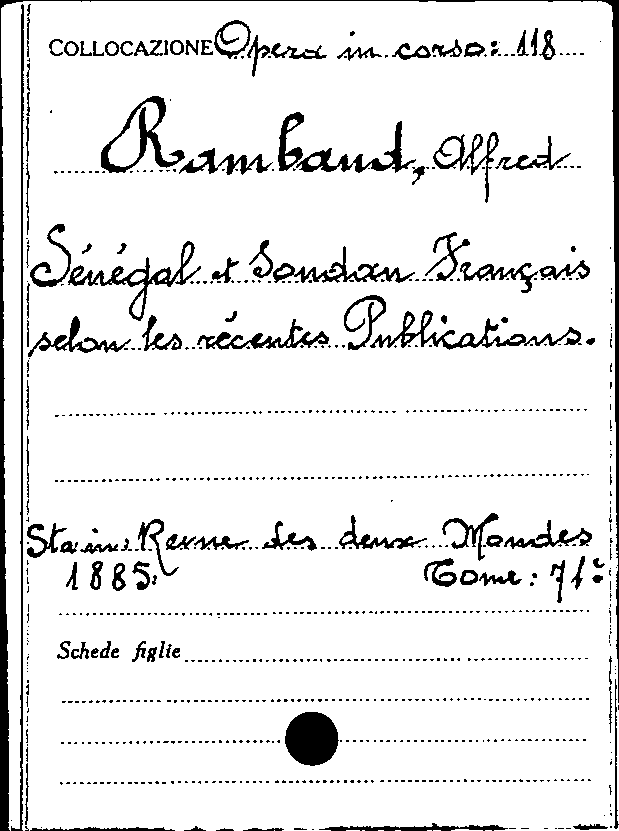 COLLOCAZIONE Opera in corso: 118
Rambaud, Alfred
Sénégal et Soudan Français
selon les récentes Publications.
Sta in: Revue des deux Mondes
1885. Tome: 71º
Schede figlie